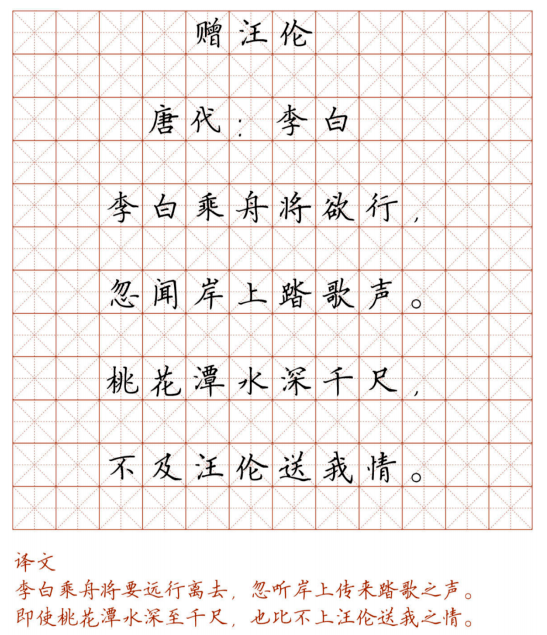 赠汪伦
唐代：李白
李白乘舟将欲行，
忽闻岸上踏歌声。
桃花潭水深千尺，
不及汪伦送我情。
译文
李白乘舟将要远行离去，忽听岸上传来踏歌之声。
即使桃花潭水深至千尺，也比不上汪伦送我之情。